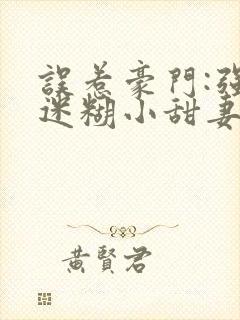 誤惹豪門:強
迷糊小甜妻
黃賢君